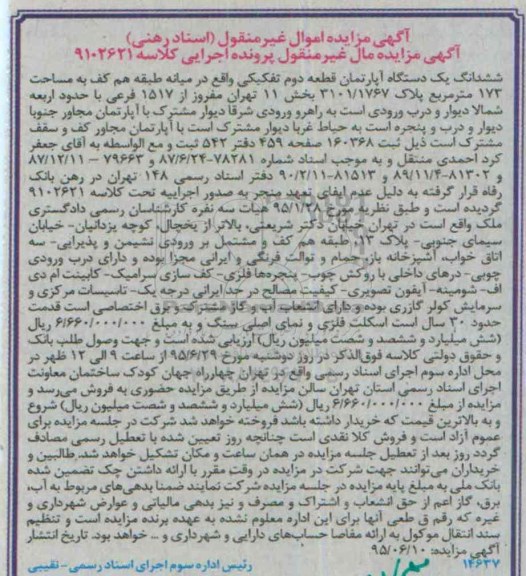 آگهی مزایده اموال غیرمنقول (اسناد رهنی)
آگهی مزایده مال غیرمنقول پرونده اجرایی کلاسه ۹۱۰۲۶۲۱
ششدانگ یک دستگاه آپارتمان قطعه دوم تفکیکی واقع در میانه طبقه هم کف به مساحت
۱۷۳ مترمربع پلاک ۳۱۰۱/۱۷۶۷ بخش ۱۱ تهران مفروز از ۱۵۱۷ فرعی با حدود اربعه
شمالا دیوار و درب ورودی است به راهرو ورودی شرقا دیوار مشترک با آپارتمان مجاور جنوبا
دیوار و درب و پنجره است به حیاط غربا دیوار مشترک است با آپارتمان مجاور کف و سقف
مشترک است ذیل ثبت ۱۶۰۳۶۸ صفحه ۴۵۹ دفتر ۵۴۲ ثبت و مع الواسطه به آقای جعفر
کرد احمدی منتقل و به موجب اسناد شماره ۷۸۲۸۱-۸۷/۶/۲۴ و ۷۹۶۶۳ – ۸۷/۱۲/۱۱
و ۸۱۳۰۲-۸۹/۱۱/۴ و ۸۱۵۱۳-۹۰/۲/۱۱ دفتر اسناد رسمی ۱۴۸ تهران در رهن بانک
رفاه قرار گرفته به دلیل عدم ایفای تعهد منجر به صدور اجراییه تحت کلاسه ۹۱۰۲۶۲۱
گردیده است و طبق نظریه مورخ ۹۵/۱/۲۱ هیات سه نفره کارشناسان رسمی دادگستری
ملک واقع است در تهران خیابان دکتر شریعتی، بالاتر از یخچال، کوچه یزدانیان- خیابان
سیمای جنوبی- پلاک ۱۳ طبقه هم کف و مشتمل بر ورودی نشیمن و پذیرایی- سه
اتاق خواب، آشپزخانه باز، حمام و توالت فرنگی و ایرانی مجزا بوده و دارای درب ورودی
چوبی- درهای داخلی با روکش چوب- پنجره‌ها فلزی- کف سازی سرامیک- کابینت ام دی
اف- شومینه- آیفون تصویری- کیفیت مصالح در حد ایرانی درجه یک- تاسیسات مرکزی و
سرمایش کولر گازری بوده و دارای انشعاب آب و گاز مشترک و برق اختصاصی است قدمت
حدود ۳۰ سال است اسکلت فلزی و نمای اصلی سنگ و به مبلغ ۶/۶۶۰/۰۰۰/۰۰۰ ریال
(شش میلیارد و ششصد و شصت میلیون ریال) ارزیابی شده است و جهت وصول طلب بانک
و حقوق دولتی کلاسه فوق‌الذکر در روز دوشنبه مورخ ۹۵/۶/۲۹ از ساعت ۹ الی ۱۲ ظهر در
محل اداره سوم اجرای اسناد رسمی واقع در تهران چهارراه جهان کودک ساختمان معاونت
اجرای اسناد رسمی استان تهران سالن مزایده از طریق مزایده حضوری به فروش می‌رسد و
مزایده از مبلغ ۶/۶۶۰/۰۰۰/۰۰۰ ریال (شش میلیارد و ششصد و شصت میلیون ریال) شروع
و به بالاترین قیمت که خریدار داشته باشد فروخته خواهد شد شرکت در جلسه مزایده برای
عموم آزاد است و فروش کلا نقدی است چنانچه روز تعیین شده با تعطیل رسمی مصادف
گردد روز بعد از تعطیل جلسه مزایده در همان ساعت و مکان تشکیل خواهد شد. طالبین و
خریداران می‌توانند جهت شرکت در مزایده در وقت مقرر با ارائه داشتن چک تضمین شده
بانک ملی به مبلغ پایه مزایده در جلسه مزایده شرکت نمایند ضمنا بدهی‌های مربوط به آب،
برق، گاز اعم از حق انشعاب و اشتراک و مصرف و نیز بدهی مالیاتی و عوارض شهرداری و
غیره که رقم ق طعی آنها برای این اداره معلوم نشده به عهده برنده مزایده است و تنظیم
سند انتقال موکول به ارائه مفاصا حساب‌های دارایی و شهرداری و .. خواهد بود. تاریخ انتشار
آگهی مزایده: ۹۵/۰۶/۱۰
۱۴۶۳۷ رئیس اداره سوم اجرای اسناد رسمی - نقیبی